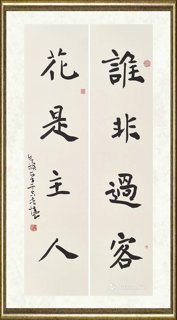 誰非過客
花是主人